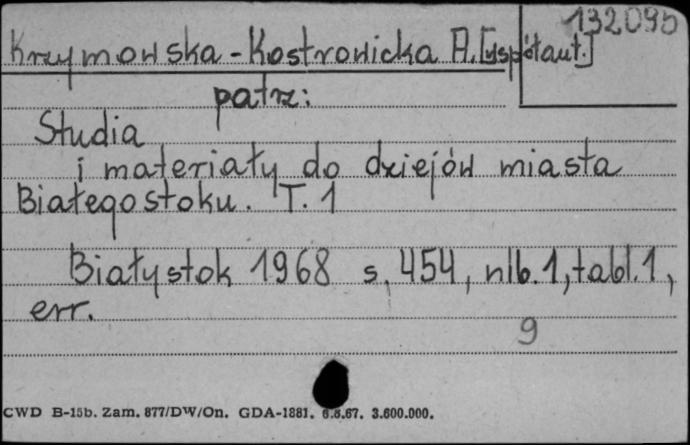 132095
Krzymowska-Kostrowicka A. [współaut.]
patrz:
Studia
i materiały do dziejów miasta
Białegostoku. T. 1
Białystok 1968 s. 454, nlb. 1, tabl. 1,
err.
9
CWD B-15b. Zam. 877/DW/On. GDA-1881. 6.6.67. 3.600.000.